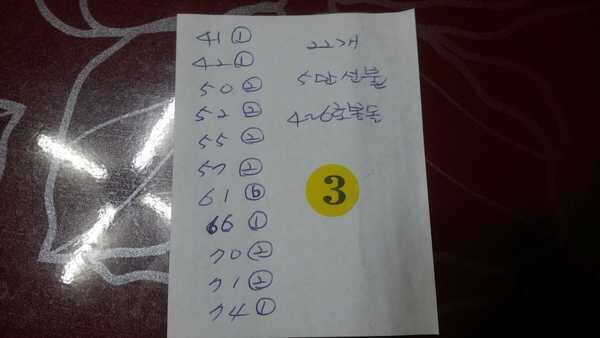 41 ①
42 ①
50 ②
52 ②
55 ②
57 ②
61 ⑥
66 ①
70 ②
71 ②
74 ①
22개
5만선불
3